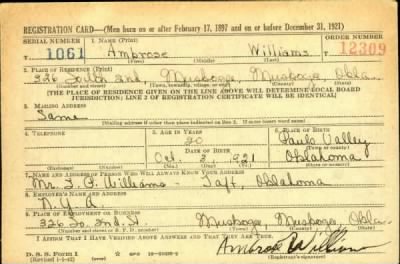 REGISTRATION CARD—(Men born on or after February 17, 1897 and on or before December 31, 1921)
SERIAL NUMBER 1. NAME (Print) ORDER NUMBER
T 1061 Ambrose Williams 12309
(First) (Middle) (Last)
2. PLACE OF RESIDENCE (Print)
326 South 2nd, Muskogee, Muskogee, Okla.
(Number and street) (Town, township, village, or city) (County) (State)
[THE PLACE OF RESIDENCE GIVEN ON THE LINE ABOVE WILL DETERMINE LOCAL BOARD
JURISDICTION; LINE 2 OF REGISTRATION CERTIFICATE WILL BE IDENTICAL]
3. MAILING ADDRESS
Same
[Mailing address if other than place indicated on line 2. If same insert word same]
4. TELEPHONE 5. AGE IN YEARS 6. PLACE OF BIRTH
20 Pauls Valley
DATE OF BIRTH (Town or county)
Oct. 3, 1921 Oklahoma
(Exchange) (Number) (Mo.) (Day) (Yr.) (State or country)
7. NAME AND ADDRESS OF PERSON WHO WILL ALWAYS KNOW YOUR ADDRESS
Williams - Taft, Oklahoma
8. EMPLOYER'S NAME AND ADDRESS
N.Y.A
9. PLACE OF EMPLOYMENT OR BUSINESS
326 So. 2nd. St. Muskogee, Muskogee, Okla.
(Number and street or R. F. D. number) (Town) (County) (State)
I AFFIRM THAT I HAVE VERIFIED ABOVE ANSWERS AND THAT THEY ARE TRUE.
D. S. S. Form 1 Ambrose Williams
(Revised 1-5-42) (over) (Registrant's signature)